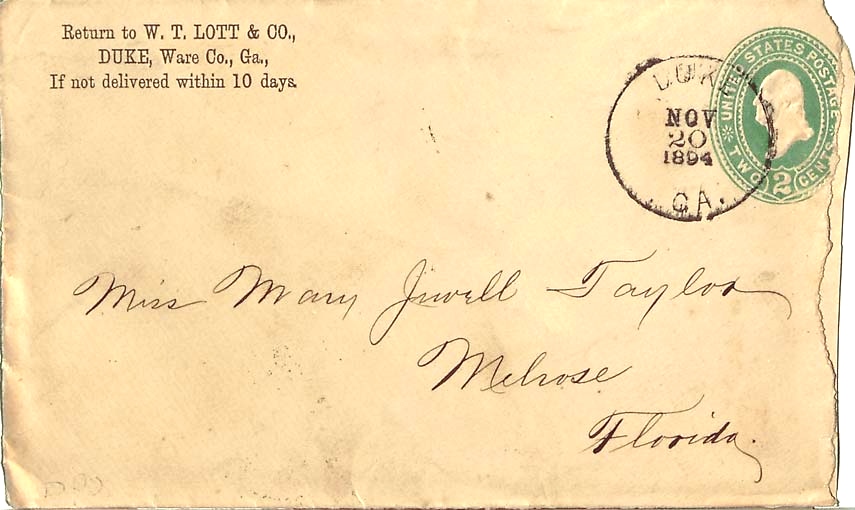 Return to W. T. LOTT & CO.,
DUKE, Ware Co., Ga.,
If not delivered within 10 days.
DUKE
NOV
20
1894
GA.
UNITED STATES POSTAGE
TWO 2 CENTS
Miss Mary Jewell Taylor
Melrose
Florida.